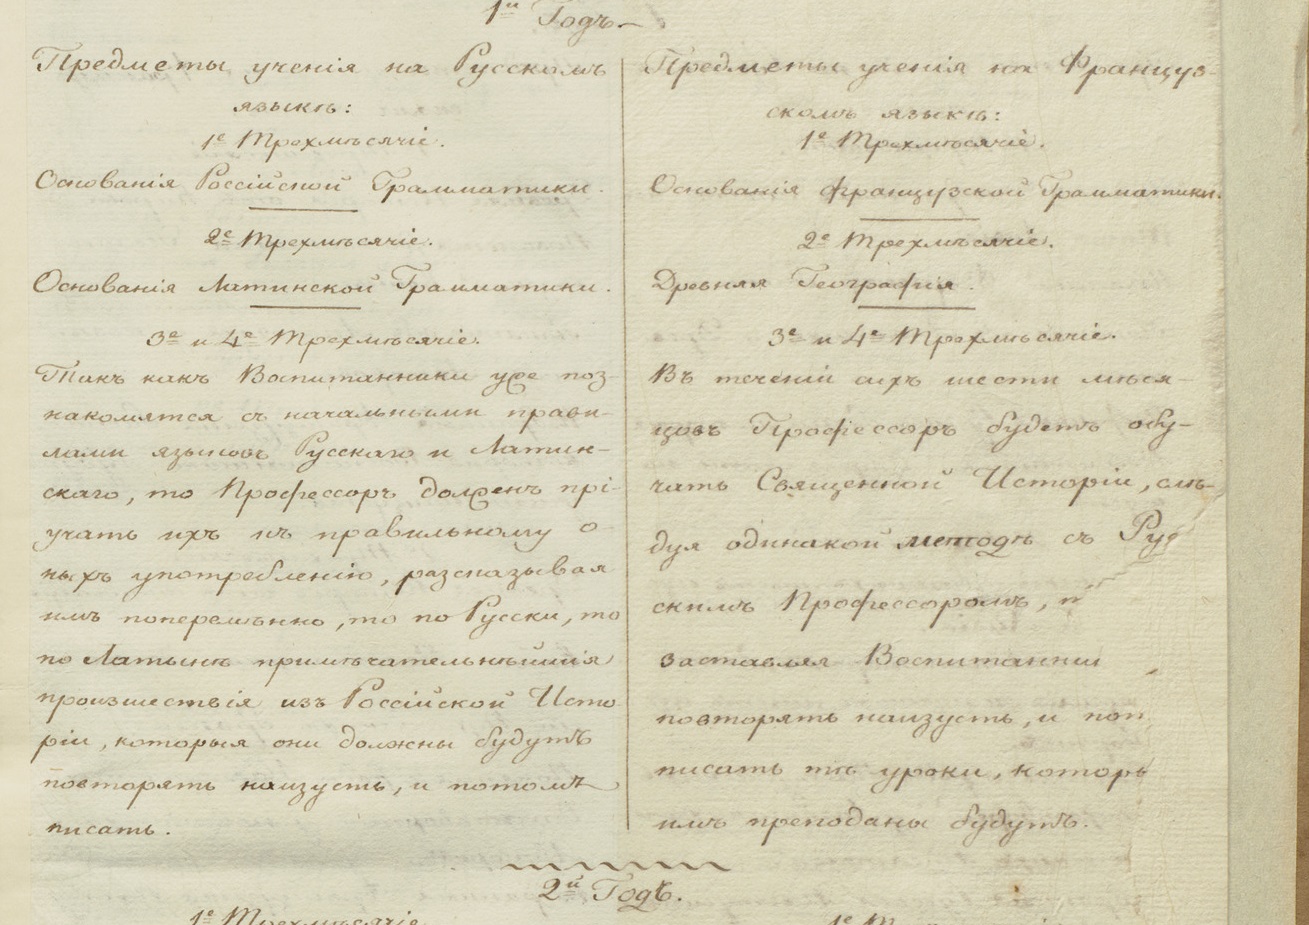 1й Годъ.
Предметы ученія на Русскомъ
языкѣ:
1е Трехмѣсячіе.
Основанія Россійской Грамматики.
2е Трехмѣсячіе.
Основанія Латинской Грамматики.
3е и 4е Трехмѣсячіе.
Такъ какъ Воспитанники уже поз-
накомятся съ начальными прави-
лами языковъ Русскаго и Латин-
скаго, то Профессоръ долженъ прі-
учать ихъ къ правильному о-
ныхъ употребленію, разсказывая
имъ поперемѣнно, то по Русски, то
по Латынѣ примѣчательнѣйшія
произшествія изъ Россійской Исто-
ріи, которыя они должны будутъ
повторять наизусть, и потомъ
писать.
Предметы ученія на Француз-
скомъ языкѣ:
1е Трехмѣсячіе.
Основанія Французской Грамматики.
2е Трехмѣсячіе.
Древняя Географія.
3е и 4е Трехмѣсячіе.
Въ теченіи сихъ шести мѣся-
цовъ Профессоръ будетъ обу-
чать Священной Исторіи, слѣ-
дуя одинакой методѣ съ Рус
скимъ Профессоромъ,
заставляя Воспитанни
повторять наизусть, и пот
писать тѣ уроки, которы
имъ преподаны будутъ.
2й Годъ.
1е Трехмѣсячіе
1е Трехмѣсячіе